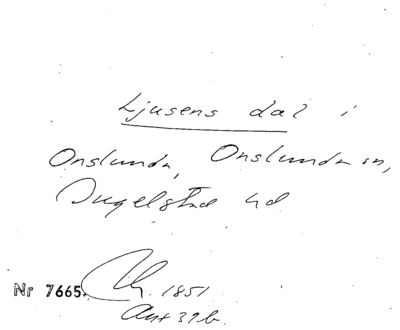 Ljusens dal i
Onslunda, Onslunda sn,
Ingelstad hd
Nr 7665.
1851
Ant 39 b.